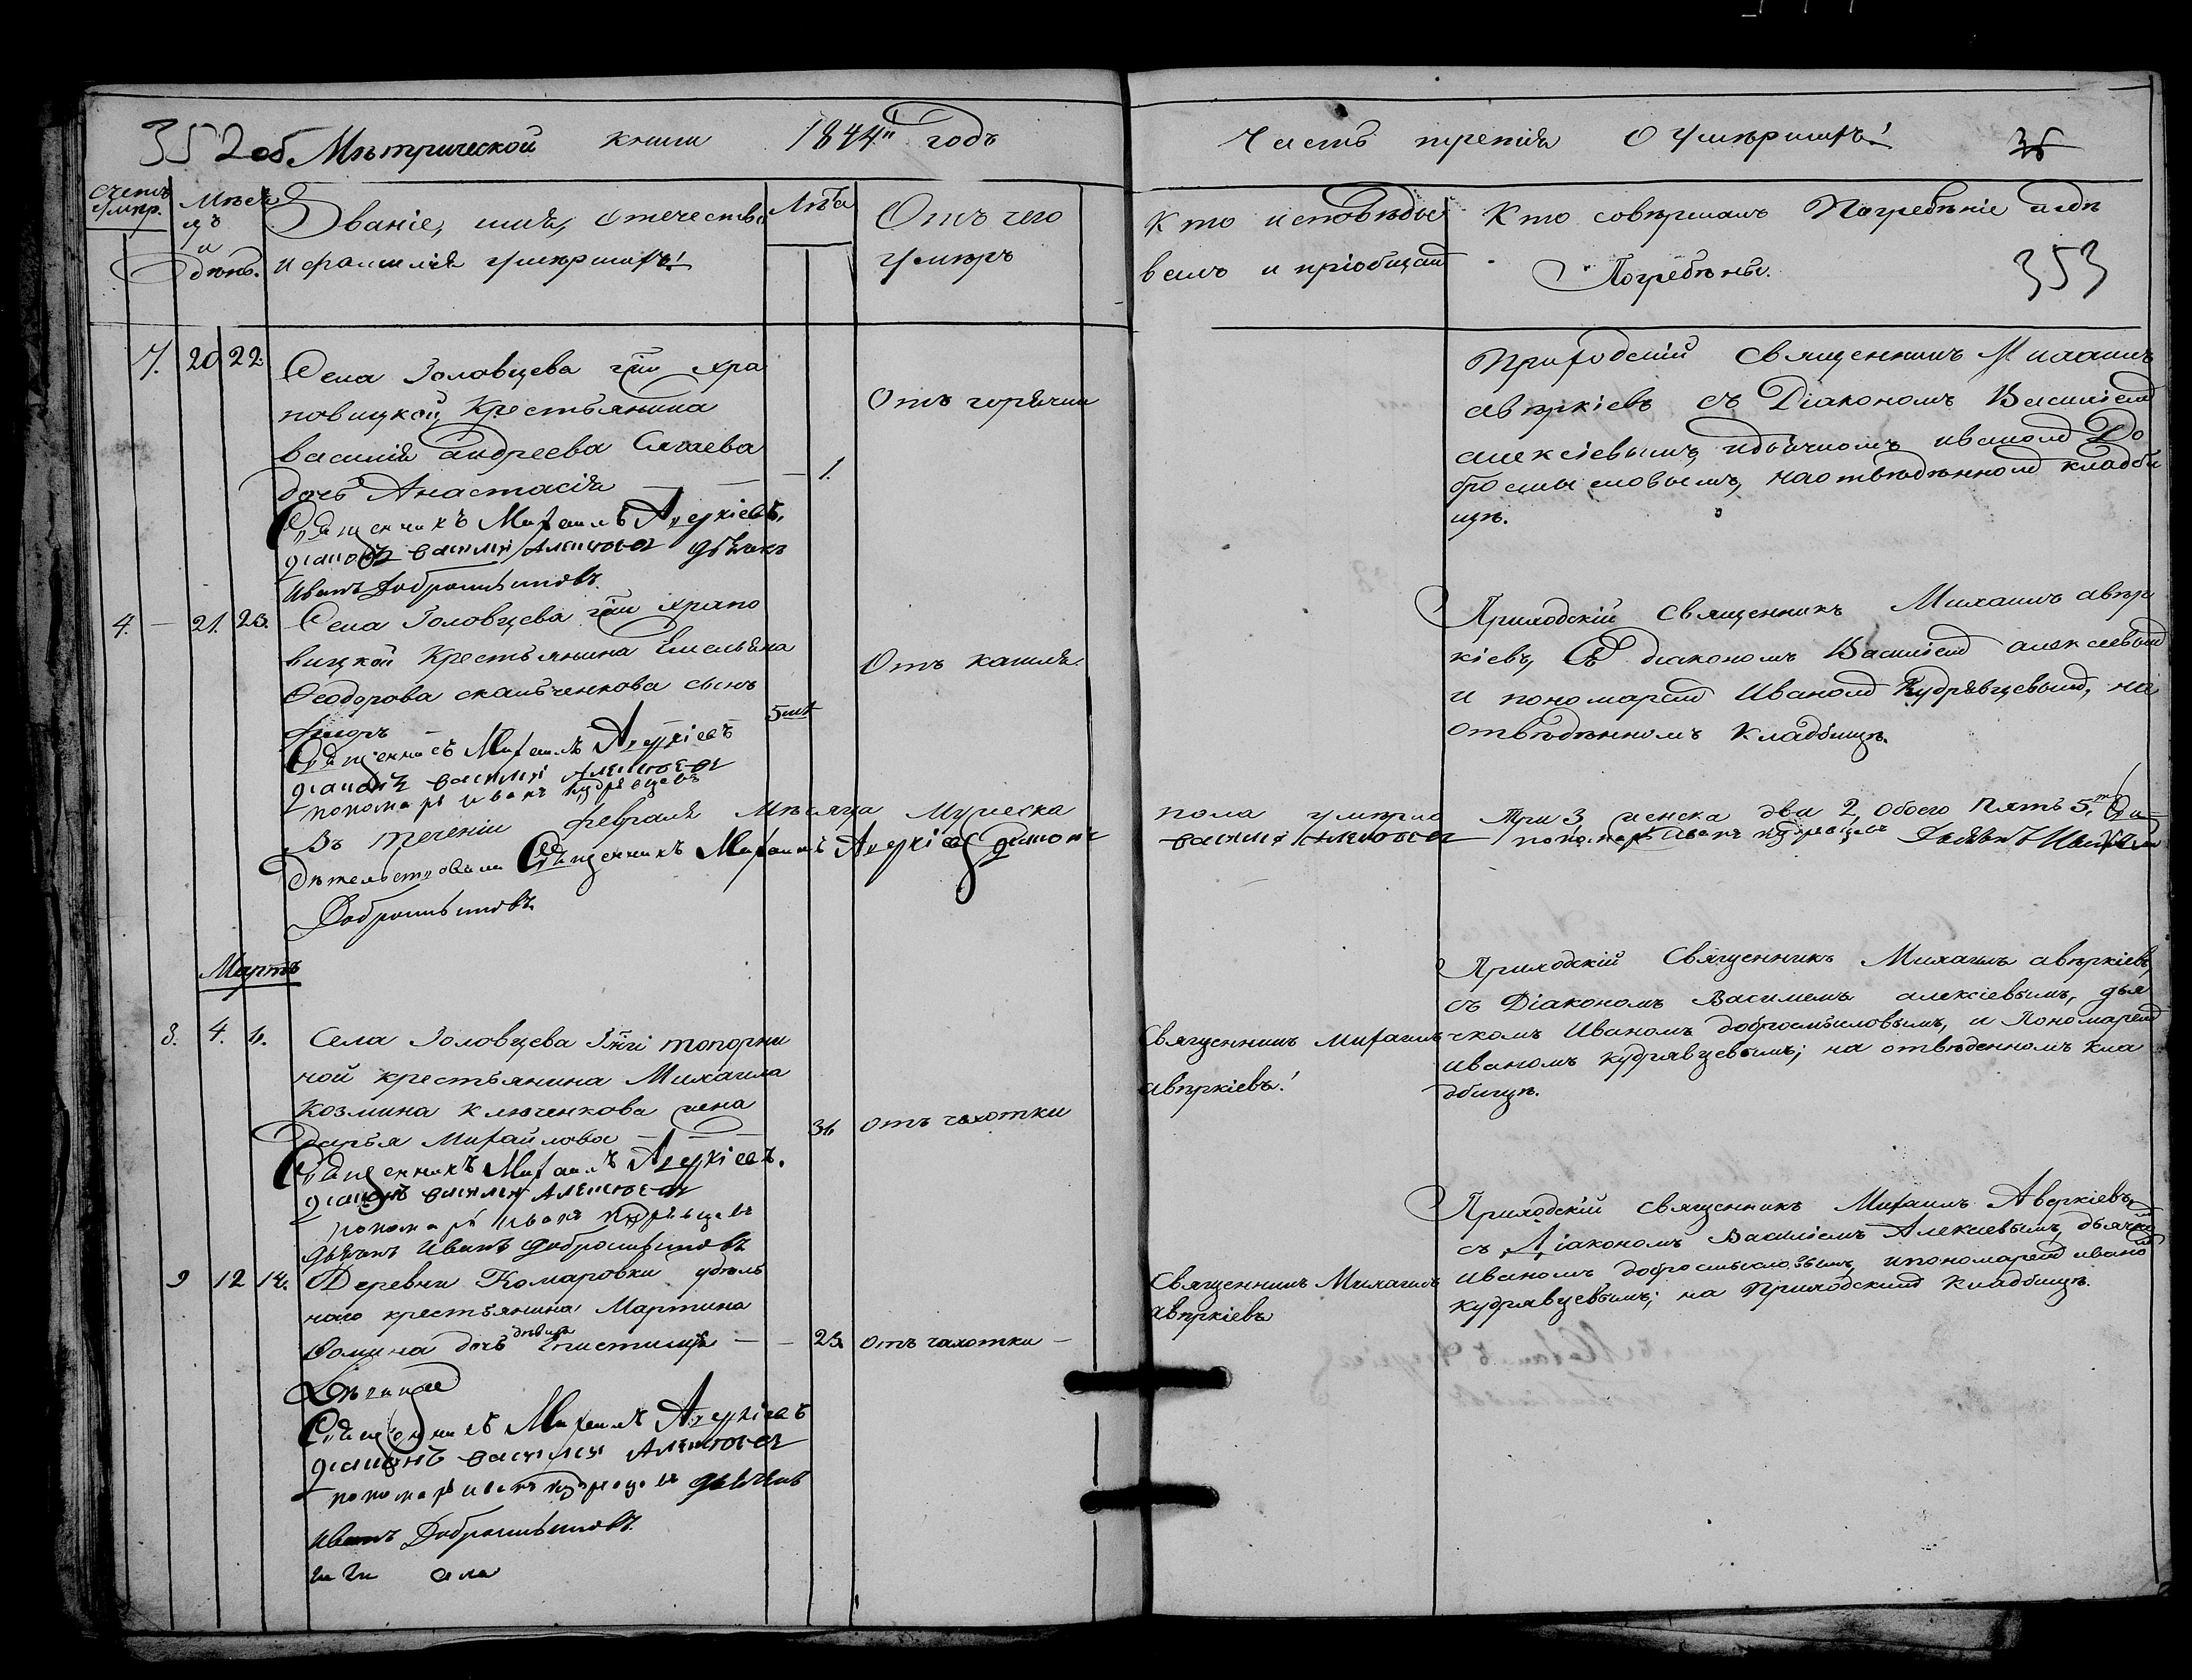 352 об Мѣтрической книги 1844" годъ
Часть третія О Умѣршихъ!
35
353
Счетъ умѣр.
Мѣсяцъ и дѣнь.
Званіе, имя, отечество
и фамилія умѣршихъ!
Лѣта
Отъ чего
умѣръ
Кто исповѣды
валъ и пріобщалъ
Кто совѣршалъ Погребѣніе и гдѣ
Погребѣны.
7. 20 22.
Села Головцева гжи Хра
повицкой, Крестьянина
василія андреева
дочь Анастасія — — — 1.
Отъ горячки
Священникъ Михаилъ Аверкіевъ,
діаконъ василій Алексіевъ дьячекъ
Иванъ Добросмысловъ.
Приходскій священникъ Михаилъ
авѣркіевъ съ Діакономъ Василіемъ
алексіевымъ, и дьячкомъ иваномъ До
бросмысловымъ, на отвѣдѣнномъ кладби
щѣ.
4. — 21. 23.
Села Головцева гжи Храпо
вицкой Крестьянина Емельяна
Феодорова скапченкова сынъ
— 5 лѣтъ
Отъ кашля.
Священникъ Михаилъ Аверкіевъ
діаконъ василій Алексіевъ
пономарь иванъ кудрявцевъ
Приходскій священникъ Михаилъ авѣр
кіевъ, Съ діакономъ Василіемъ алексіевымъ
и пономаремъ Иваномъ Кудрявцевымъ, на
отвѣдѣнномъ Кладбищѣ.
Въ теченіи февраля Мѣсяца Мужеска пола умѣрло Три 3 женска два 2, Обоего Пять 5. Сви
дѣтельствовали Священникъ Михаилъ Аверкіевъ діаконъ василій Алексіевъ пономарь Иванъ кудрявцевъ Дьячекъ Иванъ
Добросмысловъ.
Мартъ
8. 4. 6.
Села Головцева Гжи топорни
ной крестьянина Михаила
Козмина Ключенкова жена
дарья Михайлова — — — 36
отъ чахотки
Священникъ Михаилъ Аверкіевъ.
діаконъ василій Алексіевъ
пономарь иванъ кудрявцевъ
дьячекъ Иванъ Добросмысловъ
Священникъ Михаилъ
авѣркіевъ!
Приходскій Священникъ Михаилъ авѣркіевъ,
съ Діакономъ Василіемъ алексіевымъ, дья
чкомъ Иваномъ добросмысловымъ, и Пономаремъ
иваномъ кудрявцевымъ; на отвѣденномъ кла
дбищѣ.
9 12 14.
Деревни Комаровки удѣль
наго крестьянина Мартина
Фомина дочь дѣвица — — 23.
отъ чахотки —
Священникъ Михаилъ Аверкіевъ
діаконъ василій Алексіевъ
пономарь иванъ кудрявцевъ дьячекъ
Иванъ Добросмысловъ.
Священникъ Михаилъ
авѣркіевъ
Приходскій священникъ Михаилъ Аверкіевъ,
съ Діакономъ Василіемъ Алексіевымъ, дьячкомъ
Иваномъ добросмысловымъ, и пономаремъ ивано
кудрявцевымъ; на Приходскимъ Кладбищѣ.